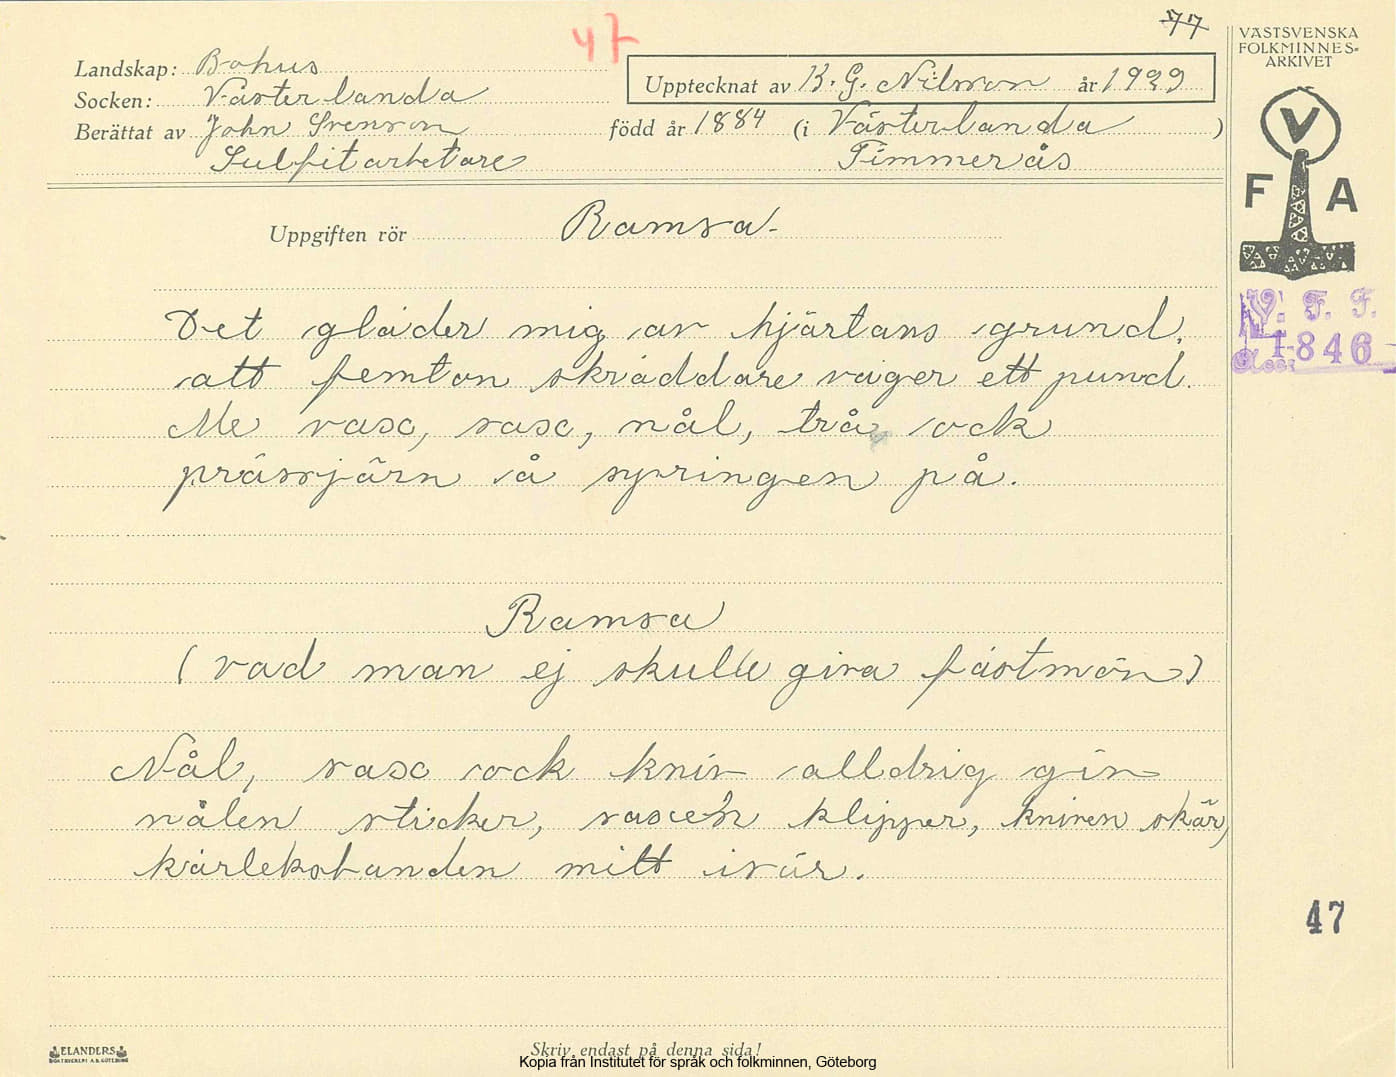 47
77
VÄSTSVENSKA
FOLKMINNES-
ARKIVET
Landskap: Bohus
Upptecknat av K. G. Nilsson år 1929
Socken: Västerlanda
Berättat av John Svenson född år 1884 (i Västerlanda )
Sulfitarbetare Timmerås
V
F A
Uppgiften rör Ramsa
V. F. F.
1846
Det gläder mig av hjärtans grund,
att femton skräddare väger ett pund.
Me sax, sax, nål, trå ock
prässjärn å springen på.
Ramsa
(vad man ej skulle giva fästmön)
Nål, sax ock kniv alldrig giv
nålen sticker, saxen klipper, kniven skär,
kärleksbanden mitt isär.
47
ELANDERS
BOKTRYCKERI A.B. GÖTEBORG
Skriv endast på denna sida!
Kopia från Institutet för språk och folkminnen, Göteborg